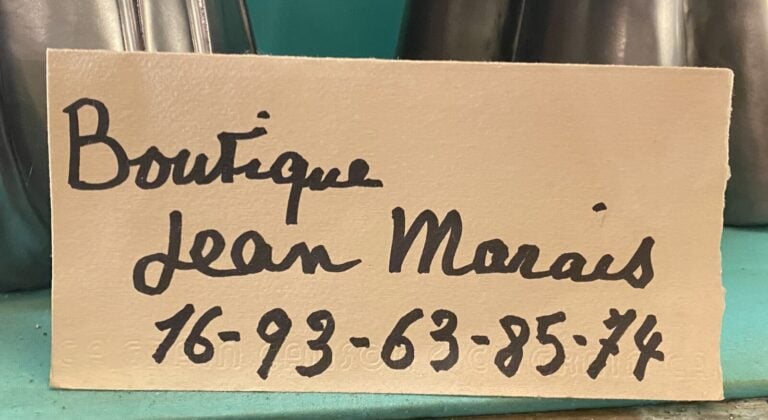 Boutique
Jean Marais
16-93-63-85-74